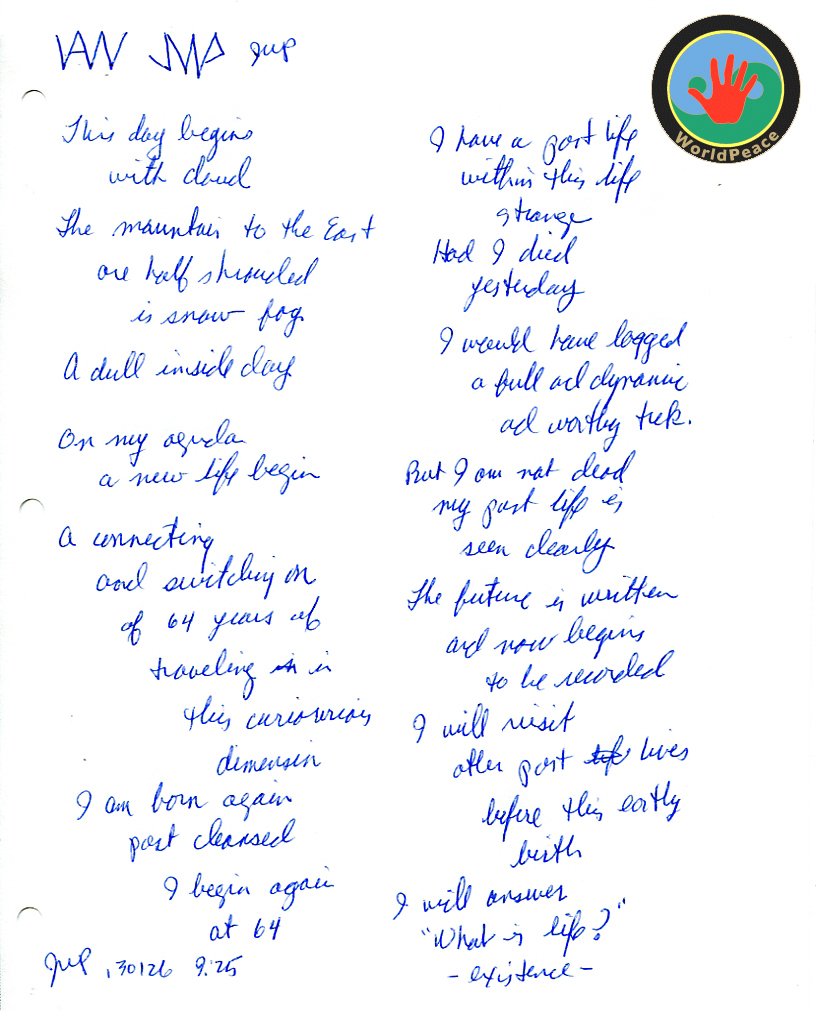 JWP
WorldPeace
This day begins
with cloud
The mountain to the East
are half shrouded
is snow fog
A dull inside day
On my agenda
a new life begin
A connecting
and switching on
of 64 years of
traveling in in
this
dimension
I am born again
past cleansed
I begin again
at 64
JWP 130126 9:25
I have a past life
within this life
strange
Had I died
yesterday
I would have logged
a full and dynamic
and worthy trek.
But I am not dead
my past life is
seen clearly
The future is written
and now begins
to be recorded
I will visit
other past life lives
before this earthly
birth
I will answer
"What is life?"
- existence -